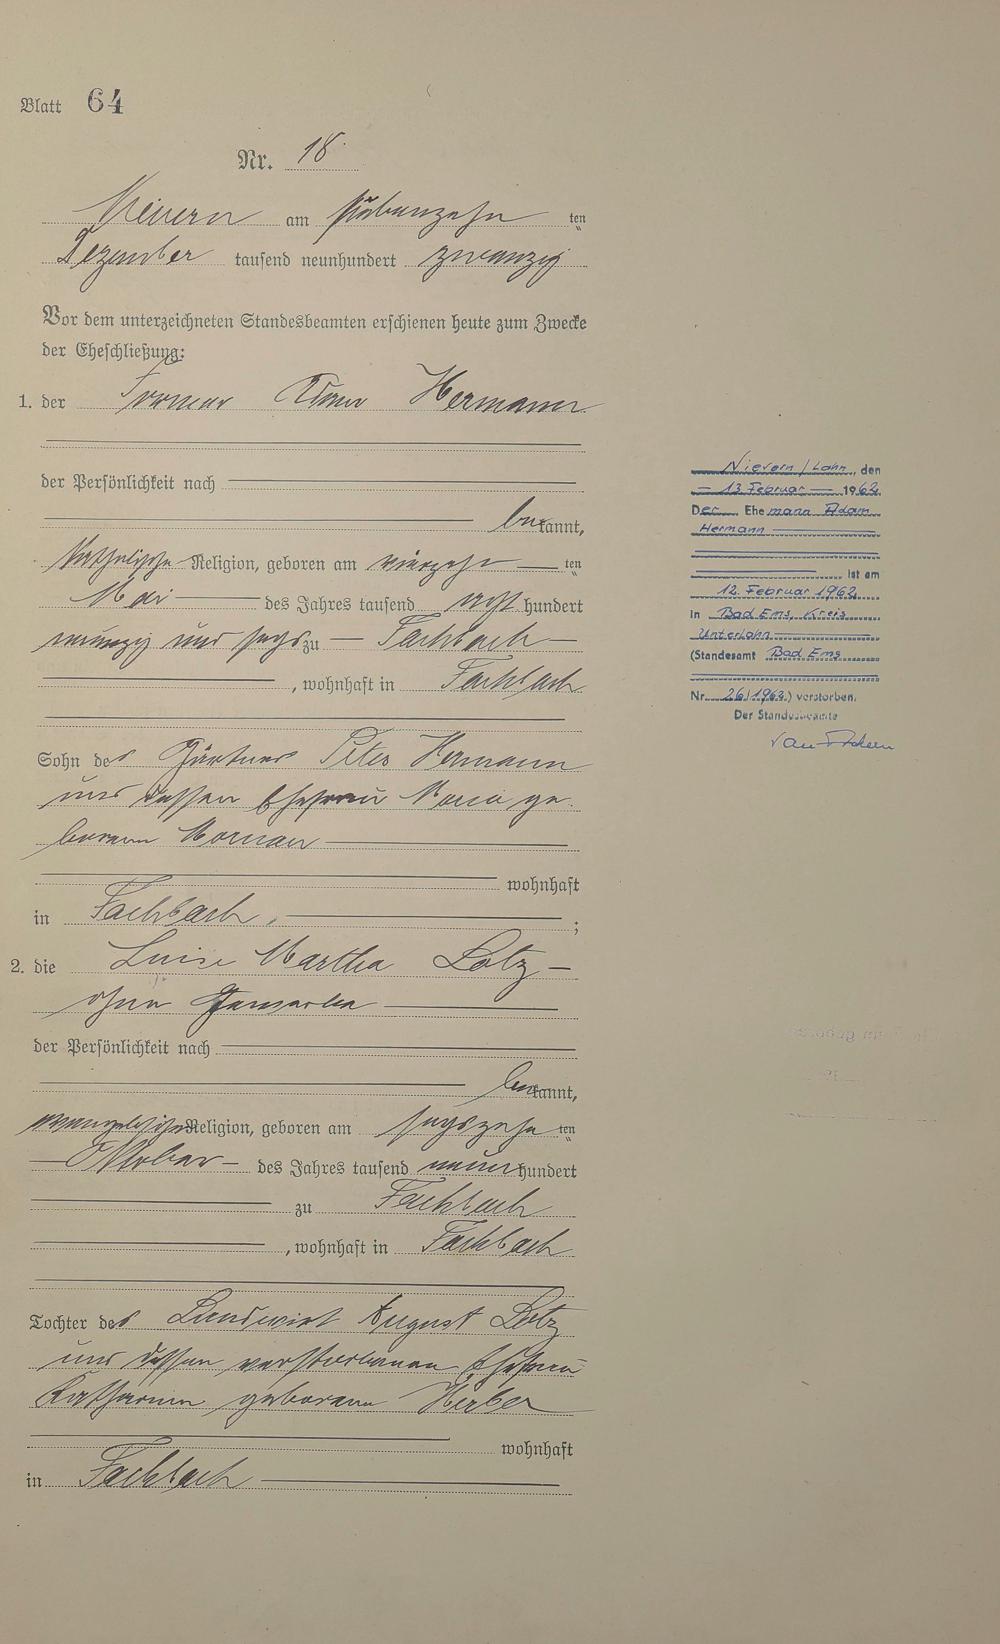 Blatt 64
Nr. 18.
Nievern am siebenzehn ten
Dezember tausend neunhundert zwanzig
Vor dem unterzeichneten Standesbeamten erschienen heute zum Zwecke
der Eheschließung:
1. der Former Adam Hermann
der Persönlichkeit nach
bekannt,
katholische Religion, geboren am vierzehn ten
Mai des Jahres tausend acht hundert
neunzig und sechs zu Fachbach
, wohnhaft in Fachbach
Sohn des Gärtners Peter Hermann
und dessen Ehefrau Maria ge-
borene
wohnhaft
in Fachbach, ;
2. die Luise Martha Lotz
ohne Gewerbe
der Persönlichkeit nach
bekannt,
evangelische Religion, geboren am sechszehn ten
Oktober des Jahres tausend neun hundert
zu Fachbach
, wohnhaft in Fachbach
Tochter des Landwirt August Lotz
und dessen verstorbenen Ehefrau
Katharina geborene Herber
wohnhaft
in Fachbach
Nievern/Lahn, den
13. Februar 1962
Der Ehemann Adam
Hermann
ist am
12. Februar 1962
in Bad Ems, Kreis
Unterlahn
(Standesamt Bad Ems
Nr. 26/1962) verstorben.
Der Standesbeamte